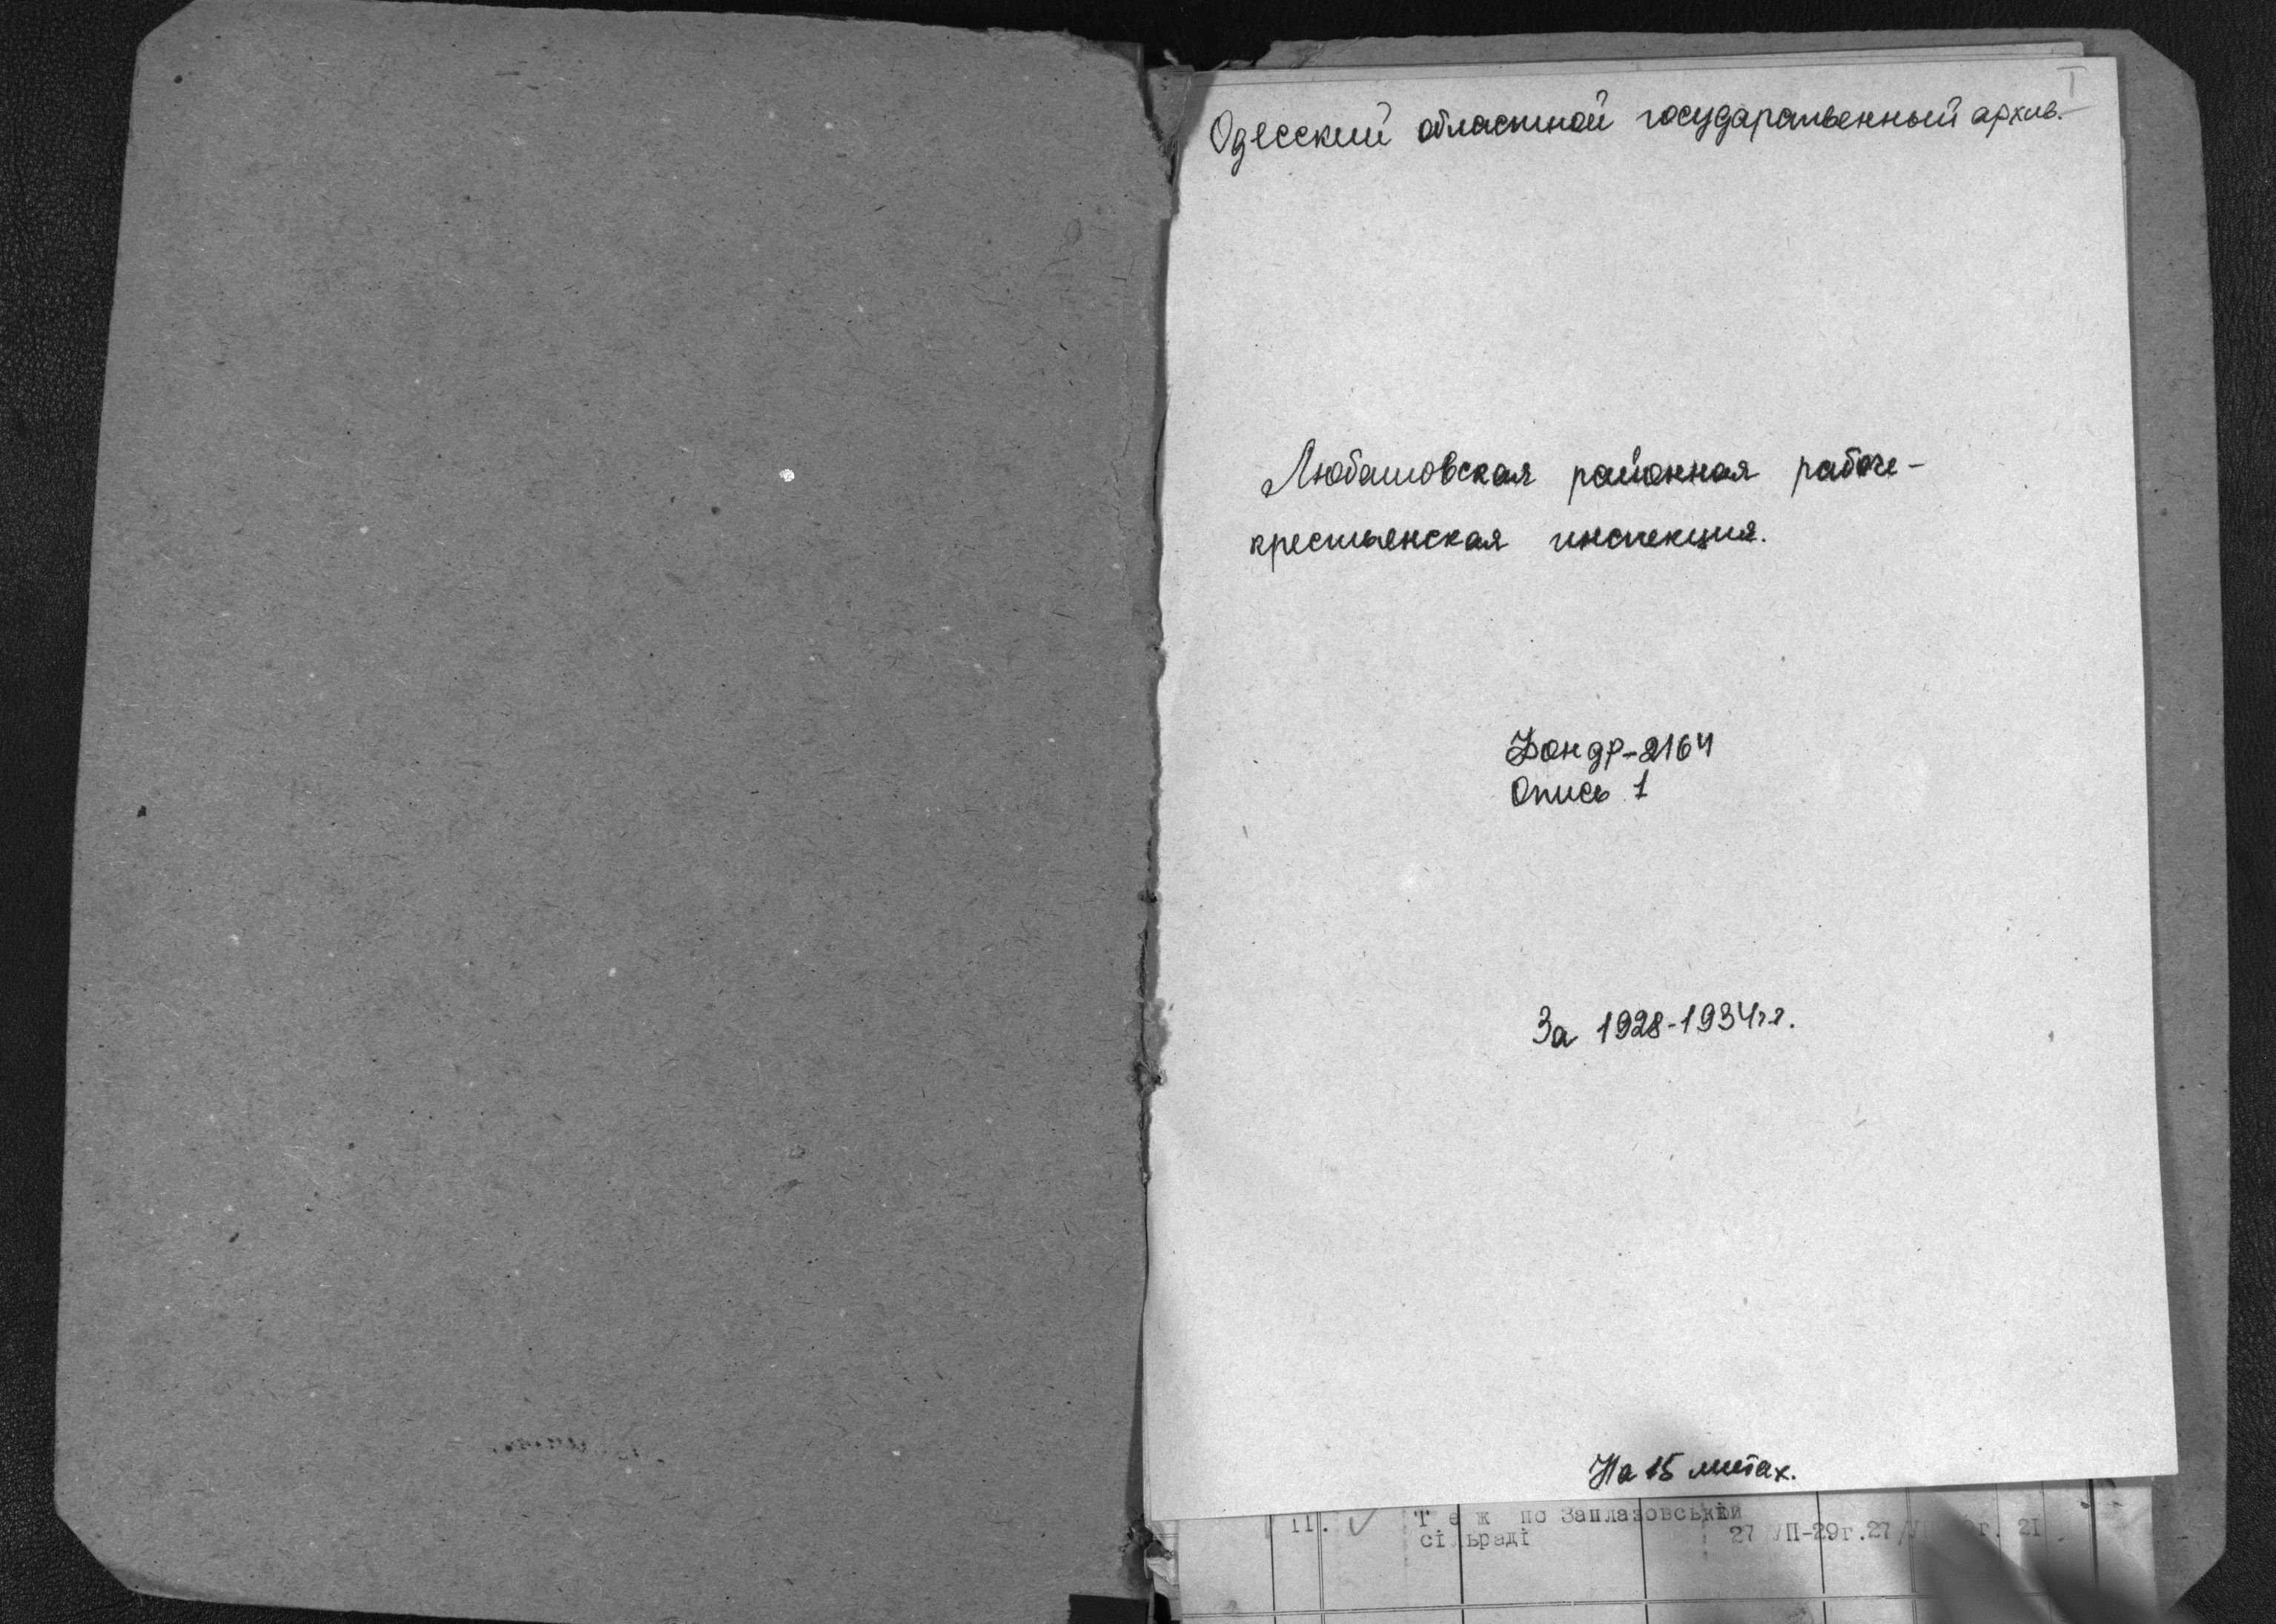 I
Одесский областной государственный архив.
Любашовская районная рабоче-
крестьянская инспекция.
Фонд Р-2164
Опись 1
За 1928-1934 гг.
На 15 листах.
11. ✓ Т е ж по Заплазовській
сільраді 27/УП-29г. 27 г. 21